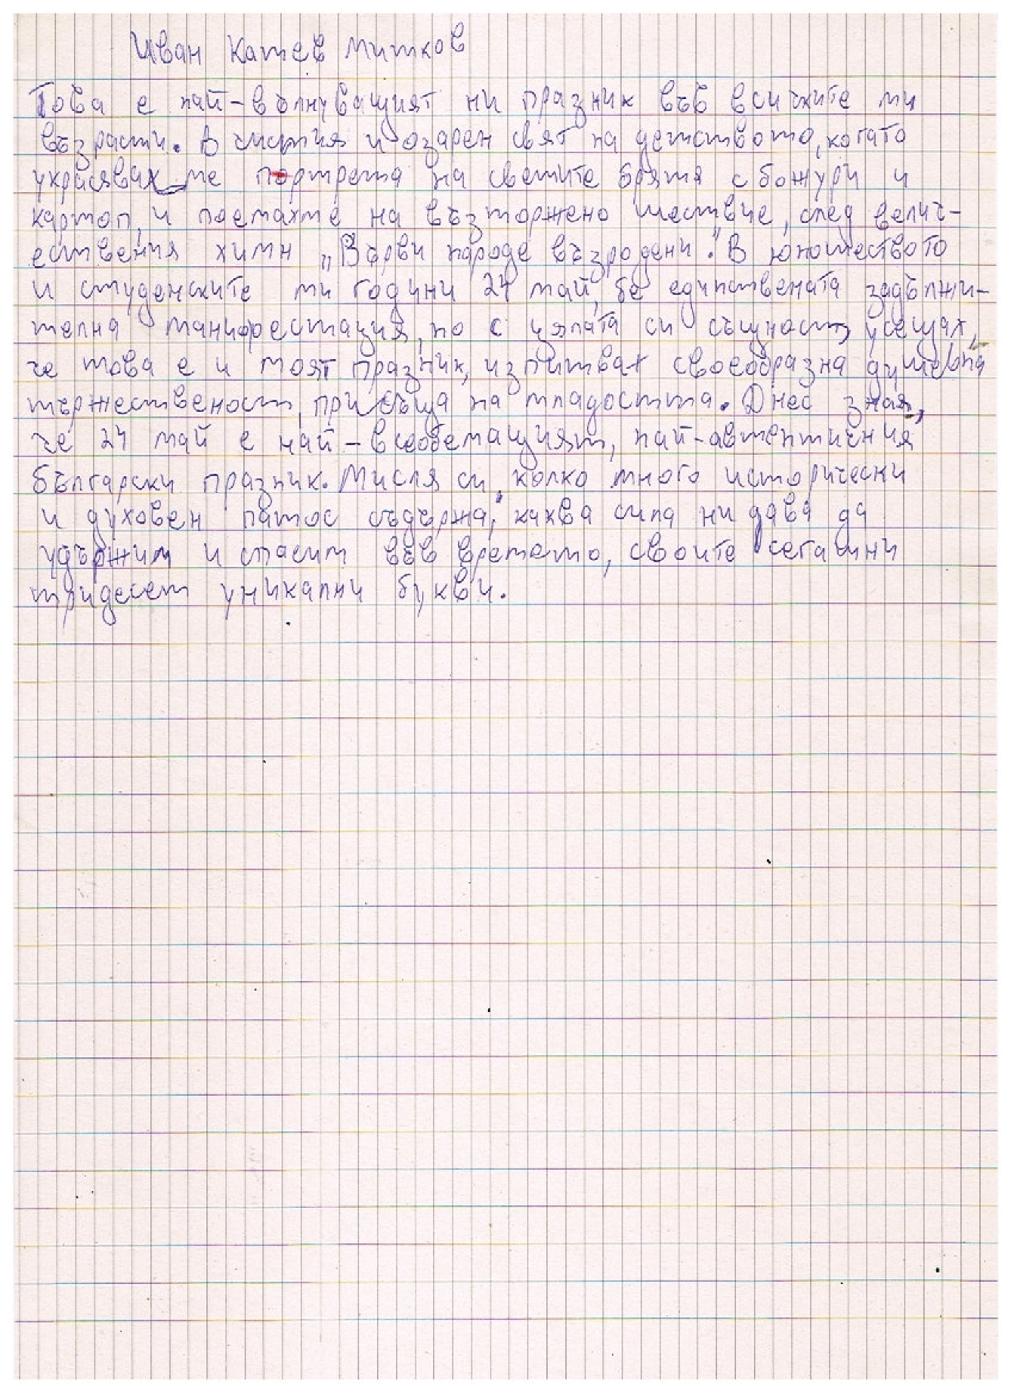 Иван Катев Митков
Това е най-вълнуващият ни празник във всичките ми
възрасти. В чистия и озарен свят на детството, когато
украсявахме портрета на светите братя с божури и
картоп, и поемахме на възторжено шествие, след велич-
ествения химн „Върви народе възродени". В юношеството
и студенските ми години 24 май, бе единствената задължи-
телна манифестация, но с цялата си същност, усещах,
че това е и моят празник, изпитвах своеобразна душевна
тържественост, присъща на младостта. Днес зная,
че 24 май е най-всеобемащият, най-автентичния
български празник. Мисля си, колко много исторически
и духовен патос съдържа, каква сила ни дава да
удържим и спасим във времето, своите сегашни
тридесет уникални букви.